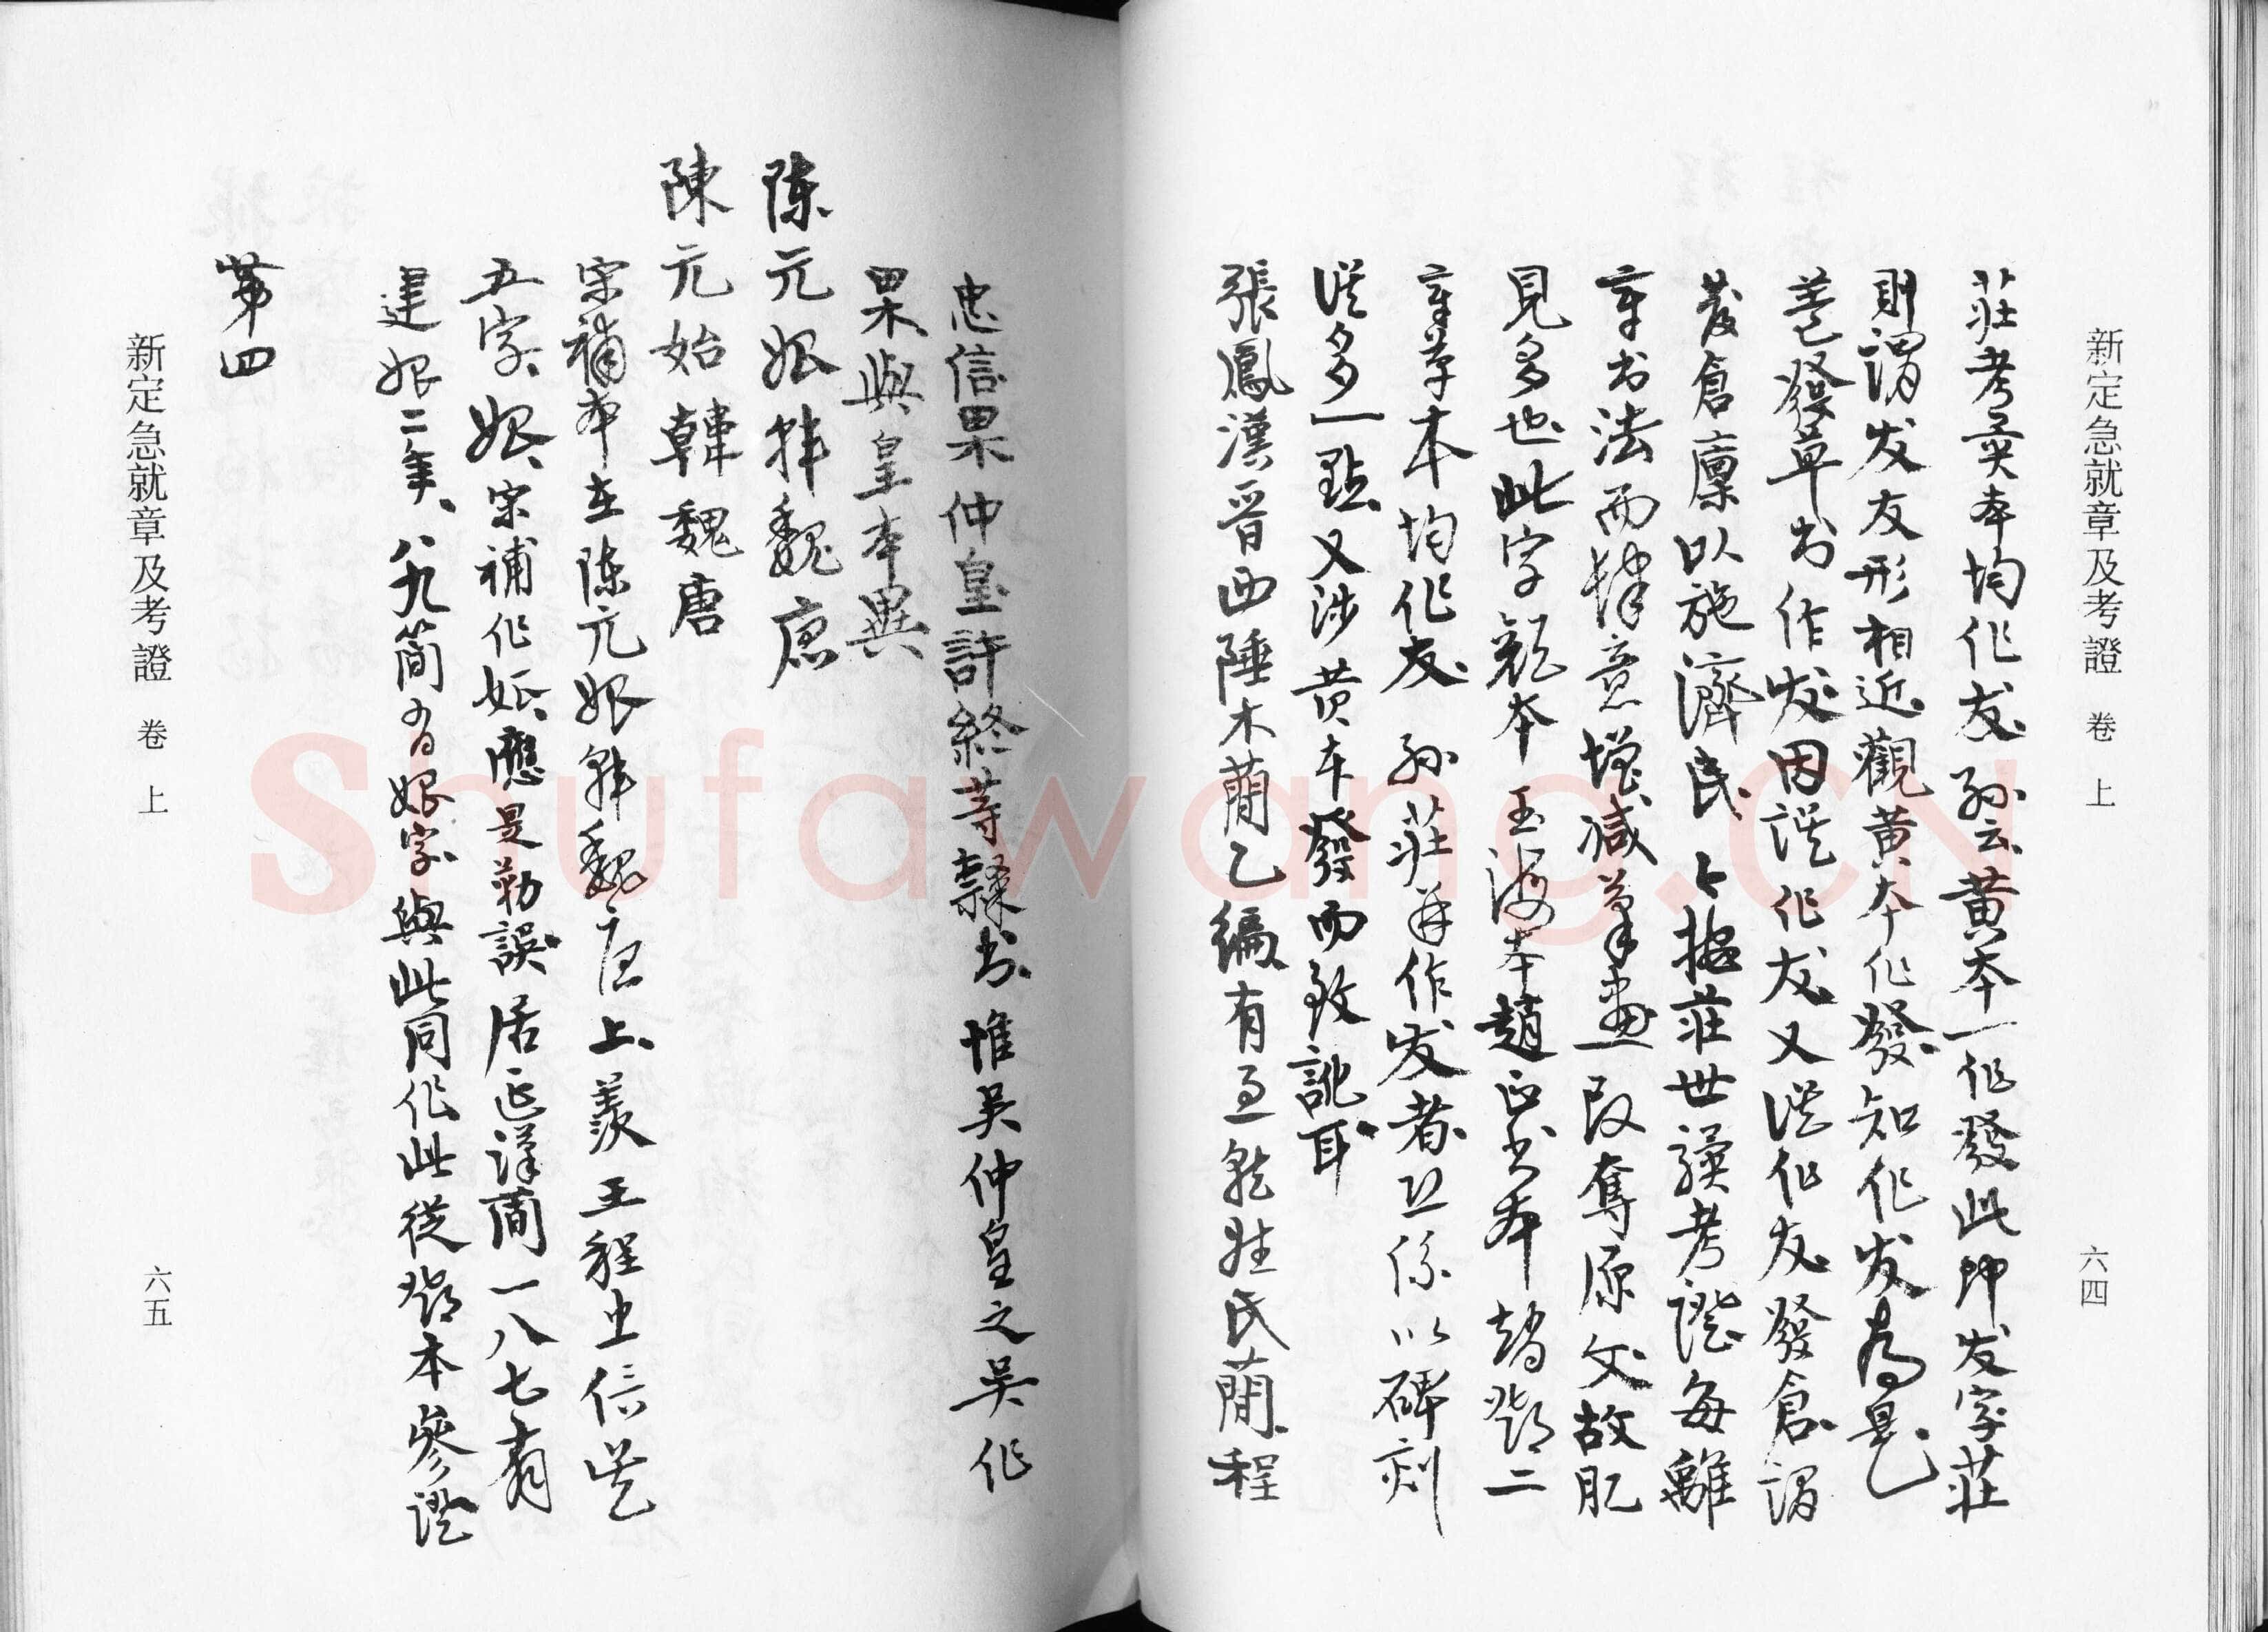 新定急就章及考證 卷上
六四
莊考異本均作犮孫云黄本一作發此即犮字莊
則謂犮友形相近觀黄本作發知作犮為是
蓋發草书作犮因誤作犮又誤作友發倉謂
發倉廩以施濟民 據莊世驥考證每離
章书法而肄意增减筆畫一段奪原文故肊
見多也此字顏本玉海本趙正书本 鄧二
章草本均作友 孙莊并作犮者 係以碑刻
誤多一點又涉黄本發而致訛耳
張鳳漢晉西陲木蕳乙編有急就姓氏蕳程
忠信果仲皇許終苛隸书惟吴仲皇之吴作
果與皇本異
陈元始韩魏唐
陳元始韓魏唐
宋補本在陈元始韩魏唐上姜王程忠信吴
五字始宋補作 應是勒誤居延漢蕳一八七有
建始二年八九简 始字與此同作此從鄧本參證
第四
新定急就章及考證 卷上
六五
Shufawang.CN